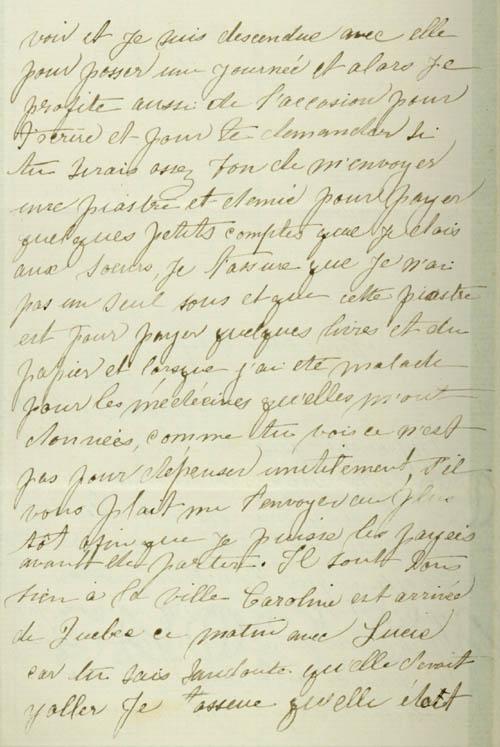 voir et je suis descendue avec elle
pour passer une journée et alors je
profite aussi de l'accasion pour
t'ecrire et pour te demander si
tu serais assez bon de m'envoyer
une piastre et demie pour payer
quelques petits comptes que je dois
aux Soeurs, Je t'assure que Je n'ai
pas un seul sous et que cette piastre
est pour payer quelques livres et du
papier et lorsque j'ai été malade
pour les médécines qu'elles m'ont
données, comme tu vois ce n'est
pas pour dépenser inutilement, S'il
vous plait me l'envoyer au plus
tôt afin que je puisse les payeis
avant de partir. Il sont tous
bien à la ville Caroline est arrivée
de Quebec ce matin avec Lucie
car tu sais sandoute qu'elle devait
y aller Je t'assure qu'elle était